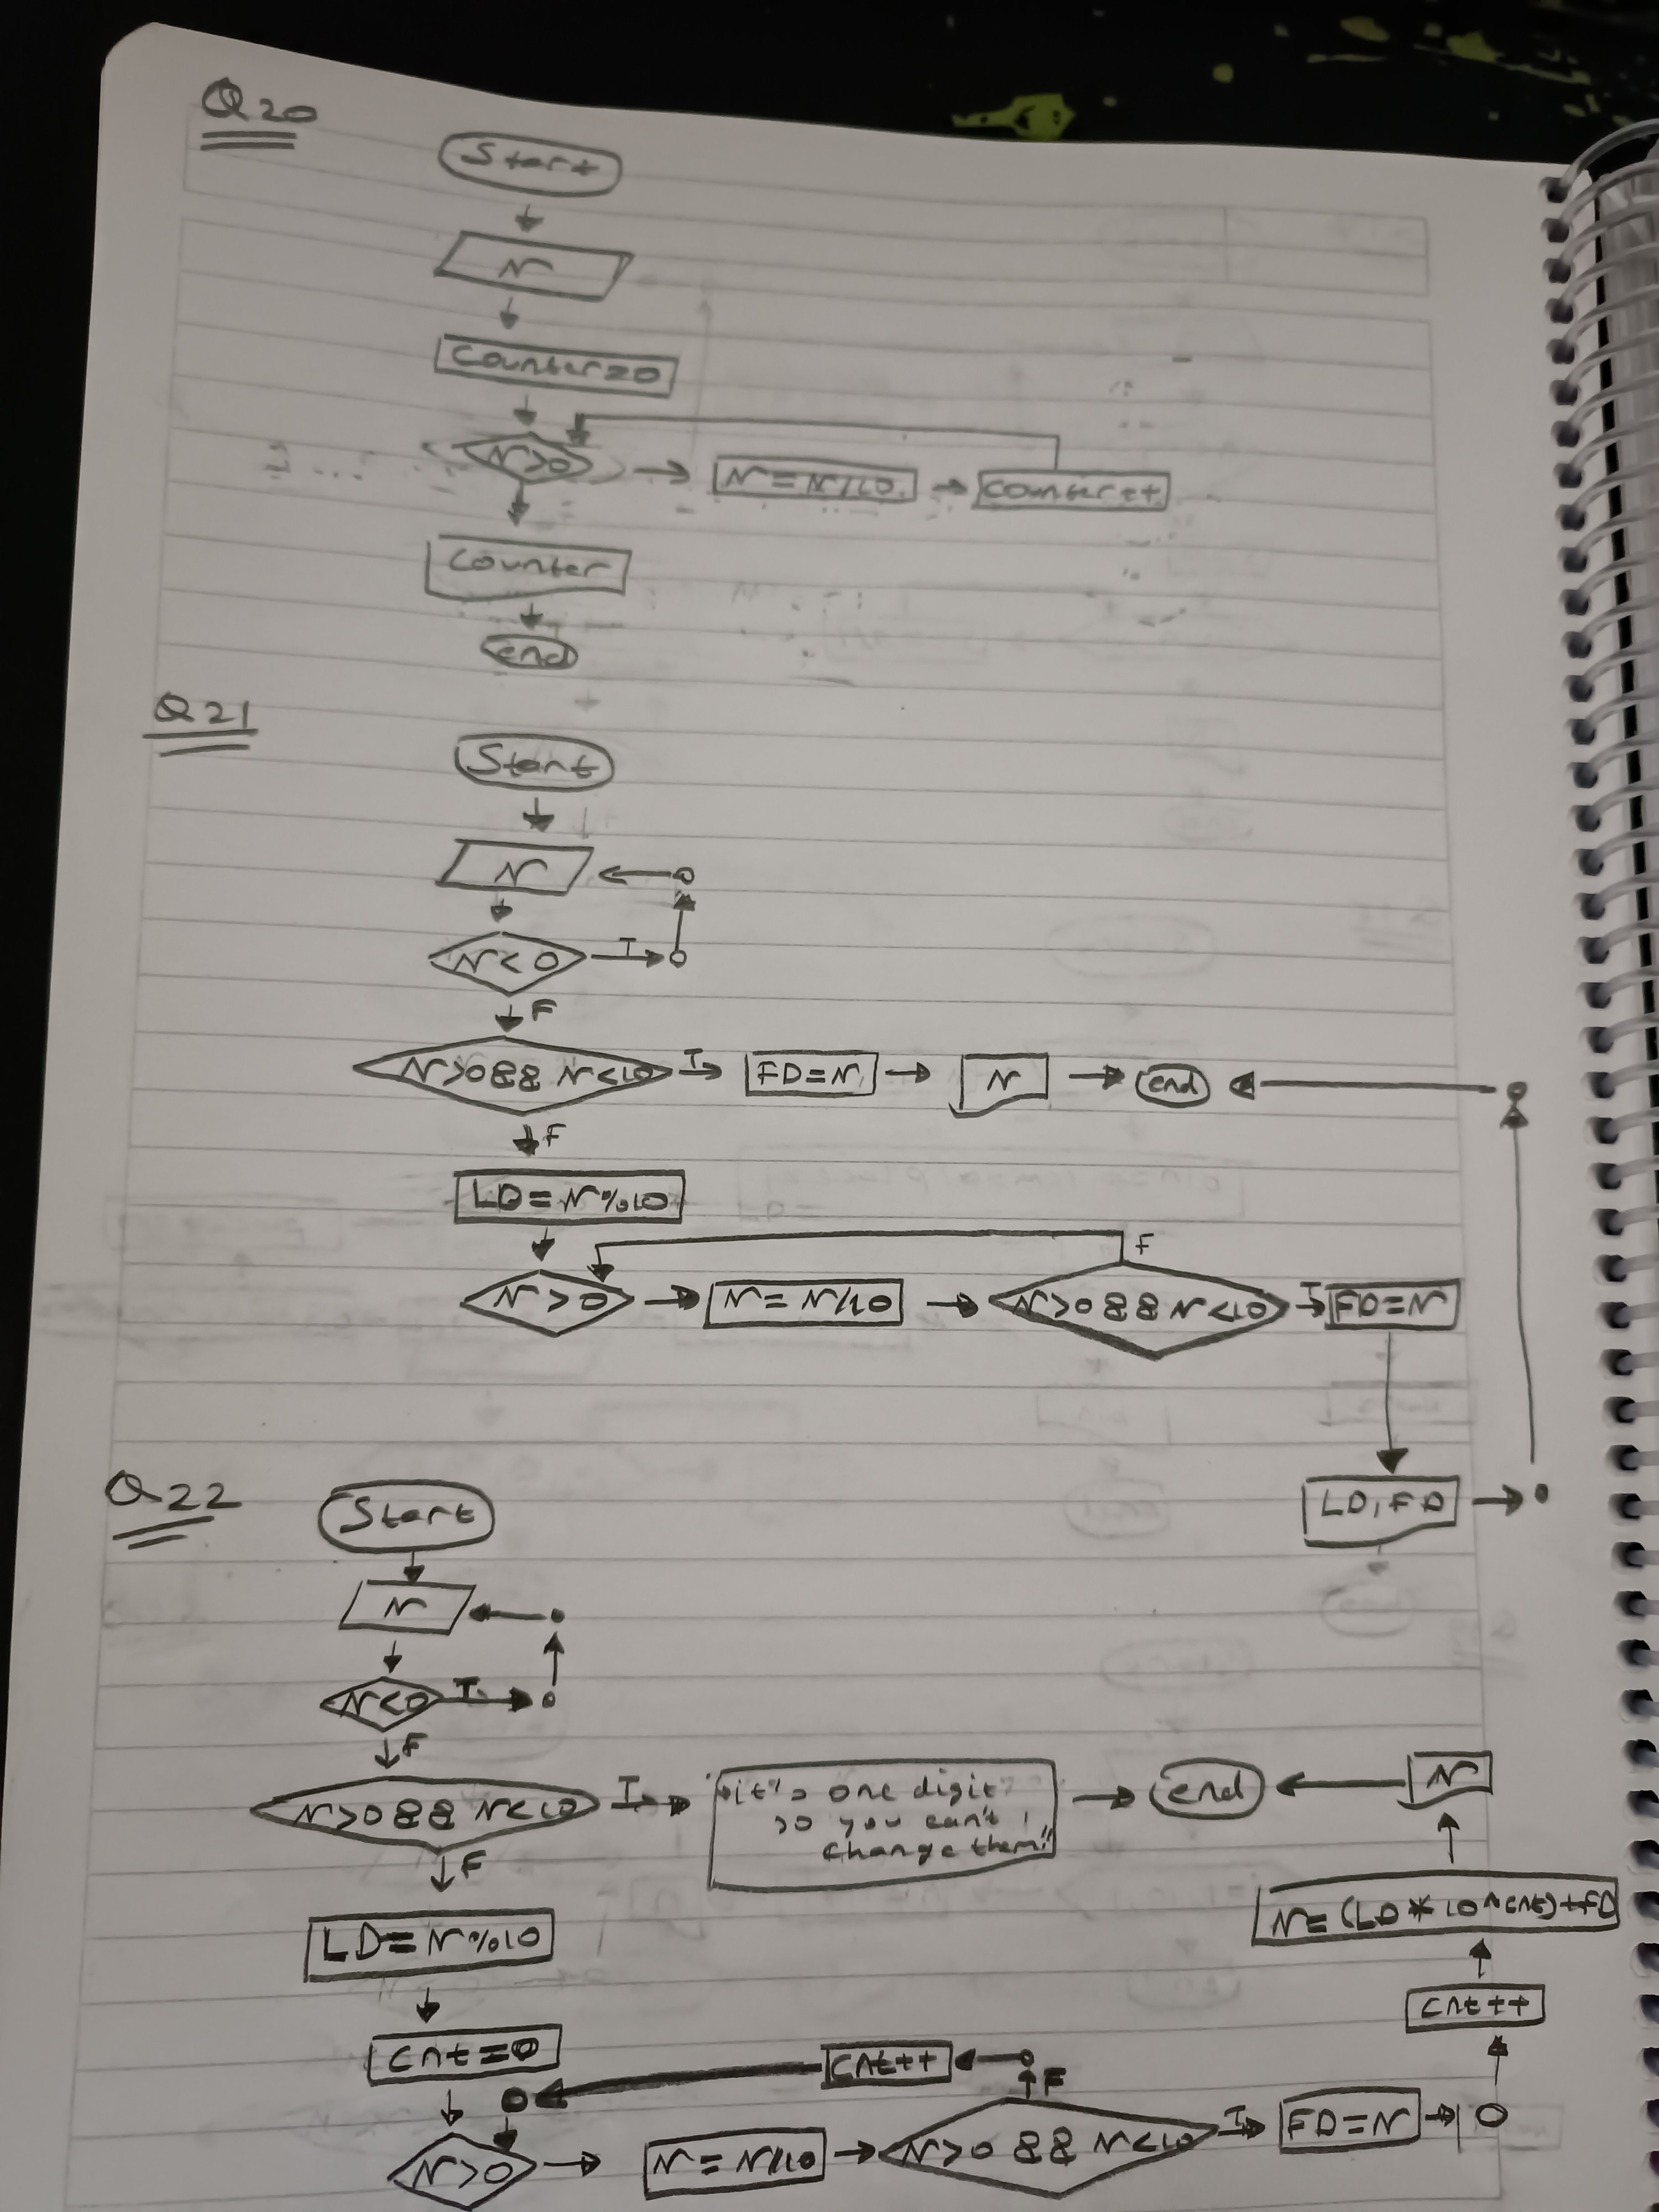 Q20
Start
N
Counter=0
N>0
N=N/10
Counter++
Counter
end
Q21
Start
N
N<0
T
F
N>0 && N<10
T
FD=N
N
end
F
LD=N%10
F
N>0
N=N/10
N>0 && N<10
T
FD=N
LD,FD
Q22
Start
N
N<0
T
F
N>0 && N<10
T
"it's one digit
so you can't
change them"
end
N
F
N=(LD*10^cnt)+FD
LD=N%10
cnt++
cnt=0
cnt++
F
N>0
N=N/10
N>0 && N<10
T
FD=N